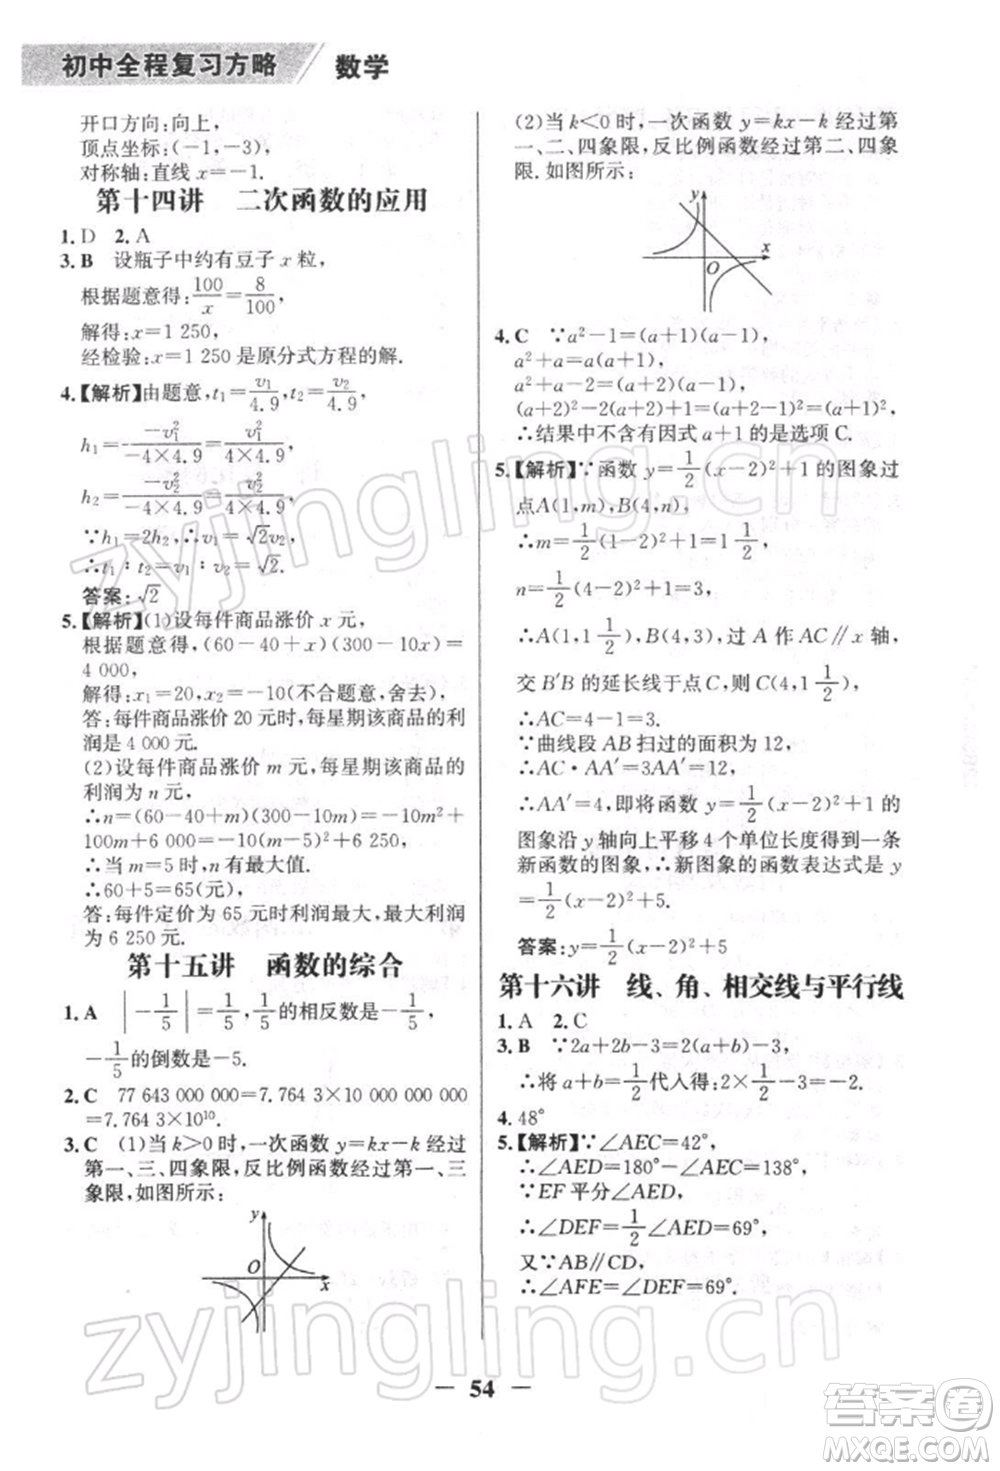 初中全程复习方略 数学
开口方向:向上,
顶点坐标:(-1,-3),
对称轴:直线 x=-1.
第十四讲 二次函数的应用
1. D 2. A
3. B 设瓶子中约有豆子 x 粒,
根据题意得:100/x=8/100,
解得:x=1 250,
经检验:x=1 250 是原分式方程的解.
4.【解析】由题意,t₁=v₁/4.9,t₂=v₂/4.9,
h₁=-v₁²/(-4×4.9)=v₁²/(4×4.9),
h₂=-v₂²/(-4×4.9)=v₂²/(4×4.9),
∵h₁=2h₂,∴v₁=√2v₂,
∴t₁∶t₂=v₁∶v₂=√2.
答案:√2
5.【解析】(1)设每件商品涨价 x 元,
根据题意得,(60-40+x)(300-10x)=
4 000,
解得:x₁=20,x₂=-10(不合题意,舍去),
答:每件商品涨价 20 元时,每星期该商品的利
润是 4 000 元.
(2)设每件商品涨价 m 元,每星期该商品的
利润为 n 元,
∴n=(60-40+m)(300-10m)=-10m²+
100m+6 000=-10(m-5)²+6 250,
∴当 m=5 时,n 有最大值.
∴60+5=65(元),
答:每件定价为 65 元时利润最大,最大利润
为 6 250 元.
第十五讲 函数的综合
1. A |-1/5|=1/5,1/5的相反数是-1/5,
-1/5的倒数是-5.
2. C 77 643 000 000=7.764 3×10 000 000
000=7.764 3×10¹⁰.
3. C (1)当 k>0 时,一次函数 y=kx-k 经过
第一、三、四象限,反比例函数经过第一、三
象限,如图所示:
y
O
x
(2)当 k<0 时,一次函数 y=kx-k 经过第
一、二、四象限,反比例函数经过第二、四象
限.如图所示:
y
O
x
4. C ∵a²-1=(a+1)(a-1),
a²+a=a(a+1),
a²+a-2=(a+2)(a-1),
(a+2)²-2(a+2)+1=(a+2-1)²=(a+1)²,
∴结果中不含有因式 a+1 的是选项 C.
5.【解析】∵函数 y=1/2(x-2)²+1 的图象过
点A(1,m),B(4,n),
∴m=1/2(1-2)²+1=1 1/2,
n=1/2(4-2)²+1=3,
∴A(1,1 1/2),B(4,3),过 A 作 AC∥x 轴,
交 B′B 的延长线于点 C,则 C(4,1 1/2),
∴AC=4-1=3.
∵曲线段 AB 扫过的面积为 12,
∴AC·AA′=3AA′=12,
∴AA′=4,即将函数 y=1/2(x-2)²+1 的
图象沿 y 轴向上平移 4 个单位长度得到一条
新函数的图象,∴新图象的函数表达式是 y
=1/2(x-2)²+5.
答案:y=1/2(x-2)²+5
第十六讲 线、角、相交线与平行线
1. A 2. C
3. B ∵2a+2b-3=2(a+b)-3,
∴将 a+b=1/2代入得:2×1/2-3=-2.
4. 48°
5.【解析】∵∠AEC=42°,
∴∠AED=180°-∠AEC=138°,
∵EF 平分∠AED,
∴∠DEF=1/2∠AED=69°,
又∵AB∥CD,
∴∠AFE=∠DEF=69°.
54
zyjingling.cn
zyjingling.cn
答案圈
MXQE.COM